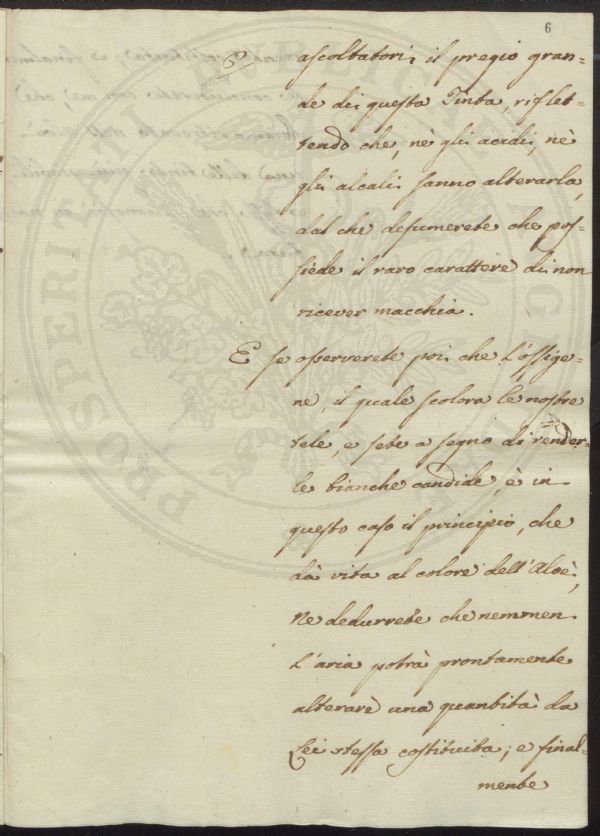 6
ascoltatori; il pregio gran=
de di questa Tinta, riflet=
tendo che, nè gli acidi, nè
gli alcali fanno alterarla,
dal che desumerete che pos=
siede il raro carattere di non
ricever macchia.
E se osserverete poi che l'ossige=
ne, il quale scolora le nostre
tele, e sete a segno di render=
le bianche candide, è in
questo caso il principio, che
dà vita al colore dell'Aloè,
Ne dedurrete che nemmen
l'aria potrà prontamente
alterare una quantità da
Lei stessa costituita; e final=
mente
PROSPERITATI PUBLICAE AUGENDAE